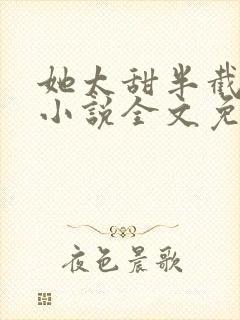 她太甜半截
小说全文免
夜色晨歌